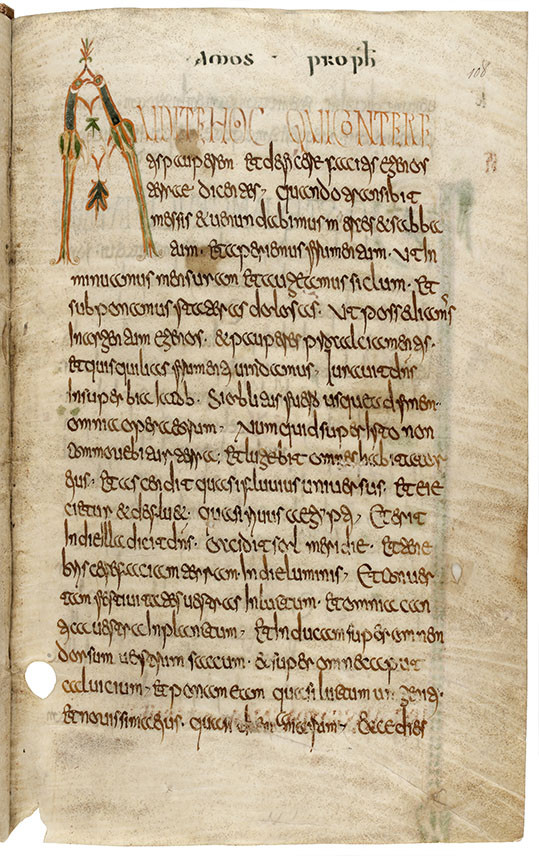 Amos · proph
108
AUDITE HOC QUI CONTERE
tis pauperem et deficere facitis egenos
terrae dicentes, quando transibit
messis & uenundabimus merces & sabba
tum · et aperiemus frumentum · ut in
minuamus mensuram et augeamus siclum · Et
subponamus stateras dolosas · ut possedeam's
in argentum egenos · & pauperes pro calciamentis ·
et quisquilias frumenti uindamus, Iurauit dn's
in superbia Iacob · Si oblitus fuero usque ad finem ·
omnia opera eorum, Numquid super isto non
commouebitur terra, et lugebit omnes habitator
eius · et ascendit quasi fluuius uniuersus · et eie
cietur & defluae · quasi riuus aegypti, Et erit
in die illa dicit dn's · occidit sol meridie · et tene
briscere faciem terram · in die luminis, Et conuer
tam festiuitates uestras in luctum · et omnia can
tica uestra in planctum, et inducam super omnem
dorsum uestrum saccum · & super omne caput
caluicium, et ponam eam quasi luctum uni geniti ·
et nouissima eius · quasi diem amaram, Ecce dies